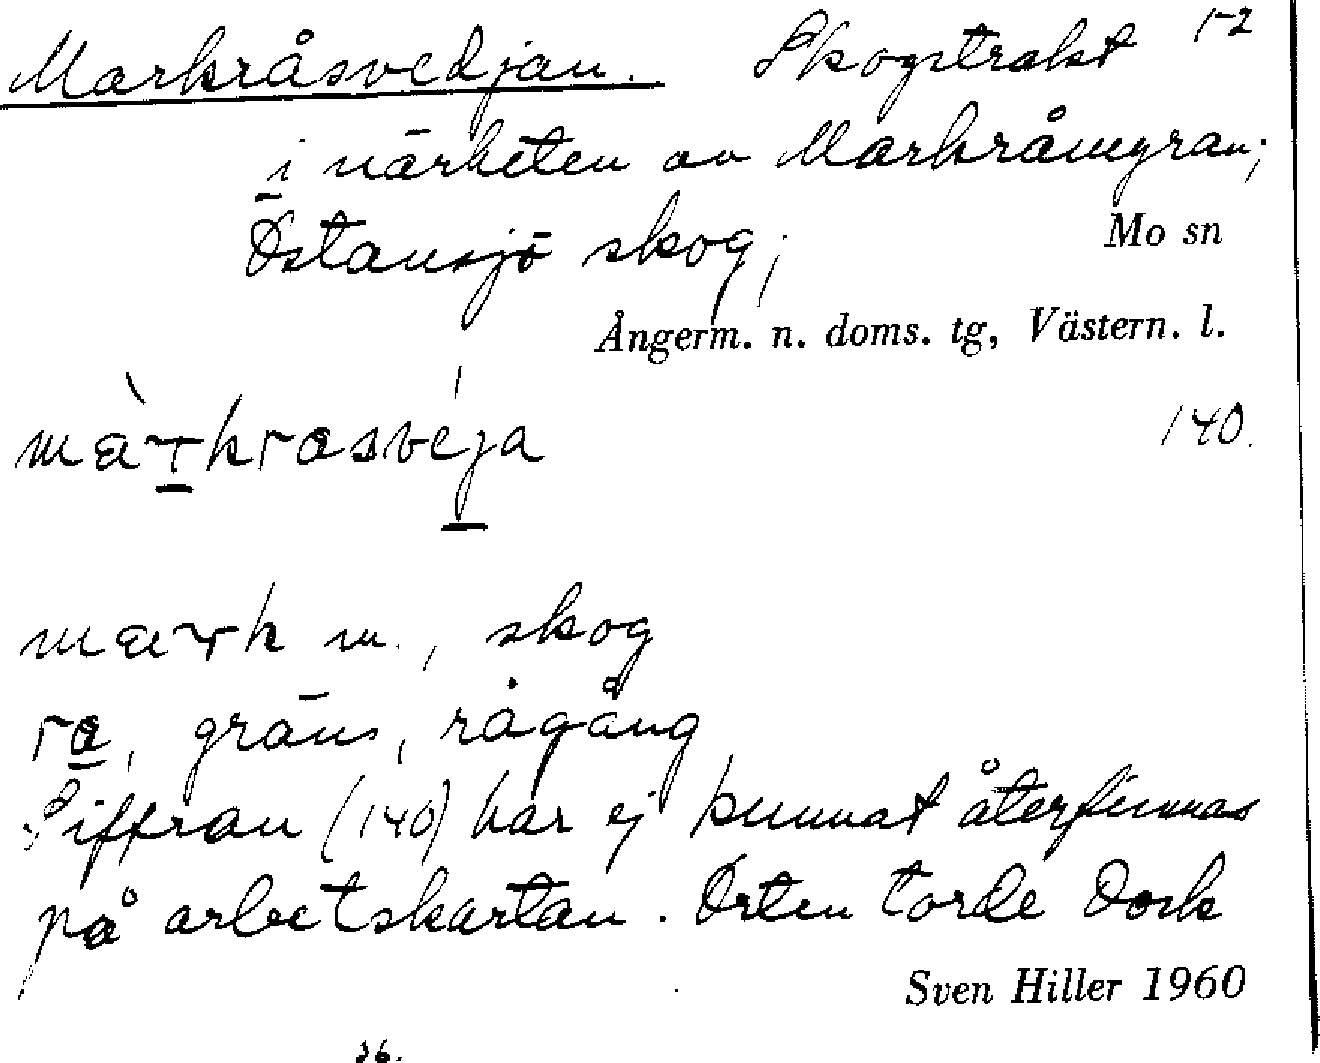 Markråsvedjan. Skogstrakt 1-2
i närheten av Markråmyran;
Östansjö skog; Mo sn
Ångerm. n. doms. tg, Västern. l.
màrkrasvéja 140.
mark m., skog
ra, gräns, rågång
Siffran (140) har ej kunnat återfinnas
på arbetskartan. Orten torde dock
Sven Hiller 1960
36.